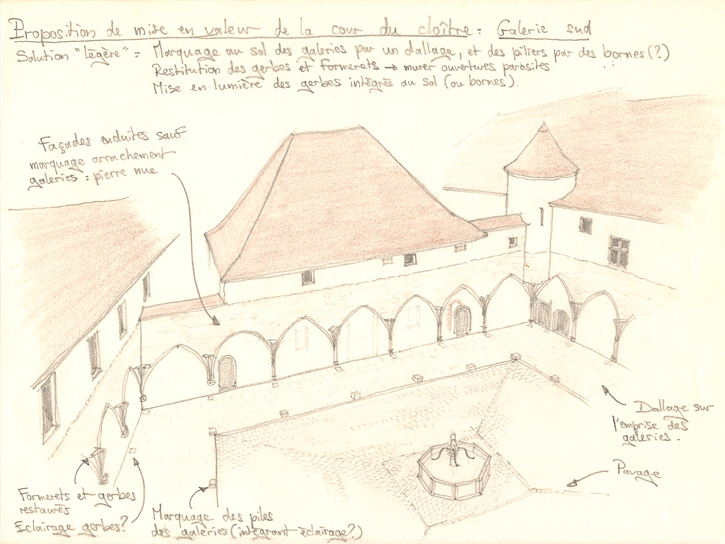 Proposition de mise en valeur de la cour du cloître : Galerie sud
Solution "légère" = Marquage au sol des galeries par un dallage, et des piliers par des bornes (?)
Restitution des gerbes et formerets → murer ouvertures parasites
Mise en lumière des gerbes intégrée au sol (ou bornes).
Façades enduites sauf
marquage arrachement
galeries : pierre nue
Dallage sur
l'emprise des
galeries.
Pavage
Formerets et gerbes
restaurés
Eclairage gerbes?
Marquage des piles
des galeries (intégrant éclairage?)